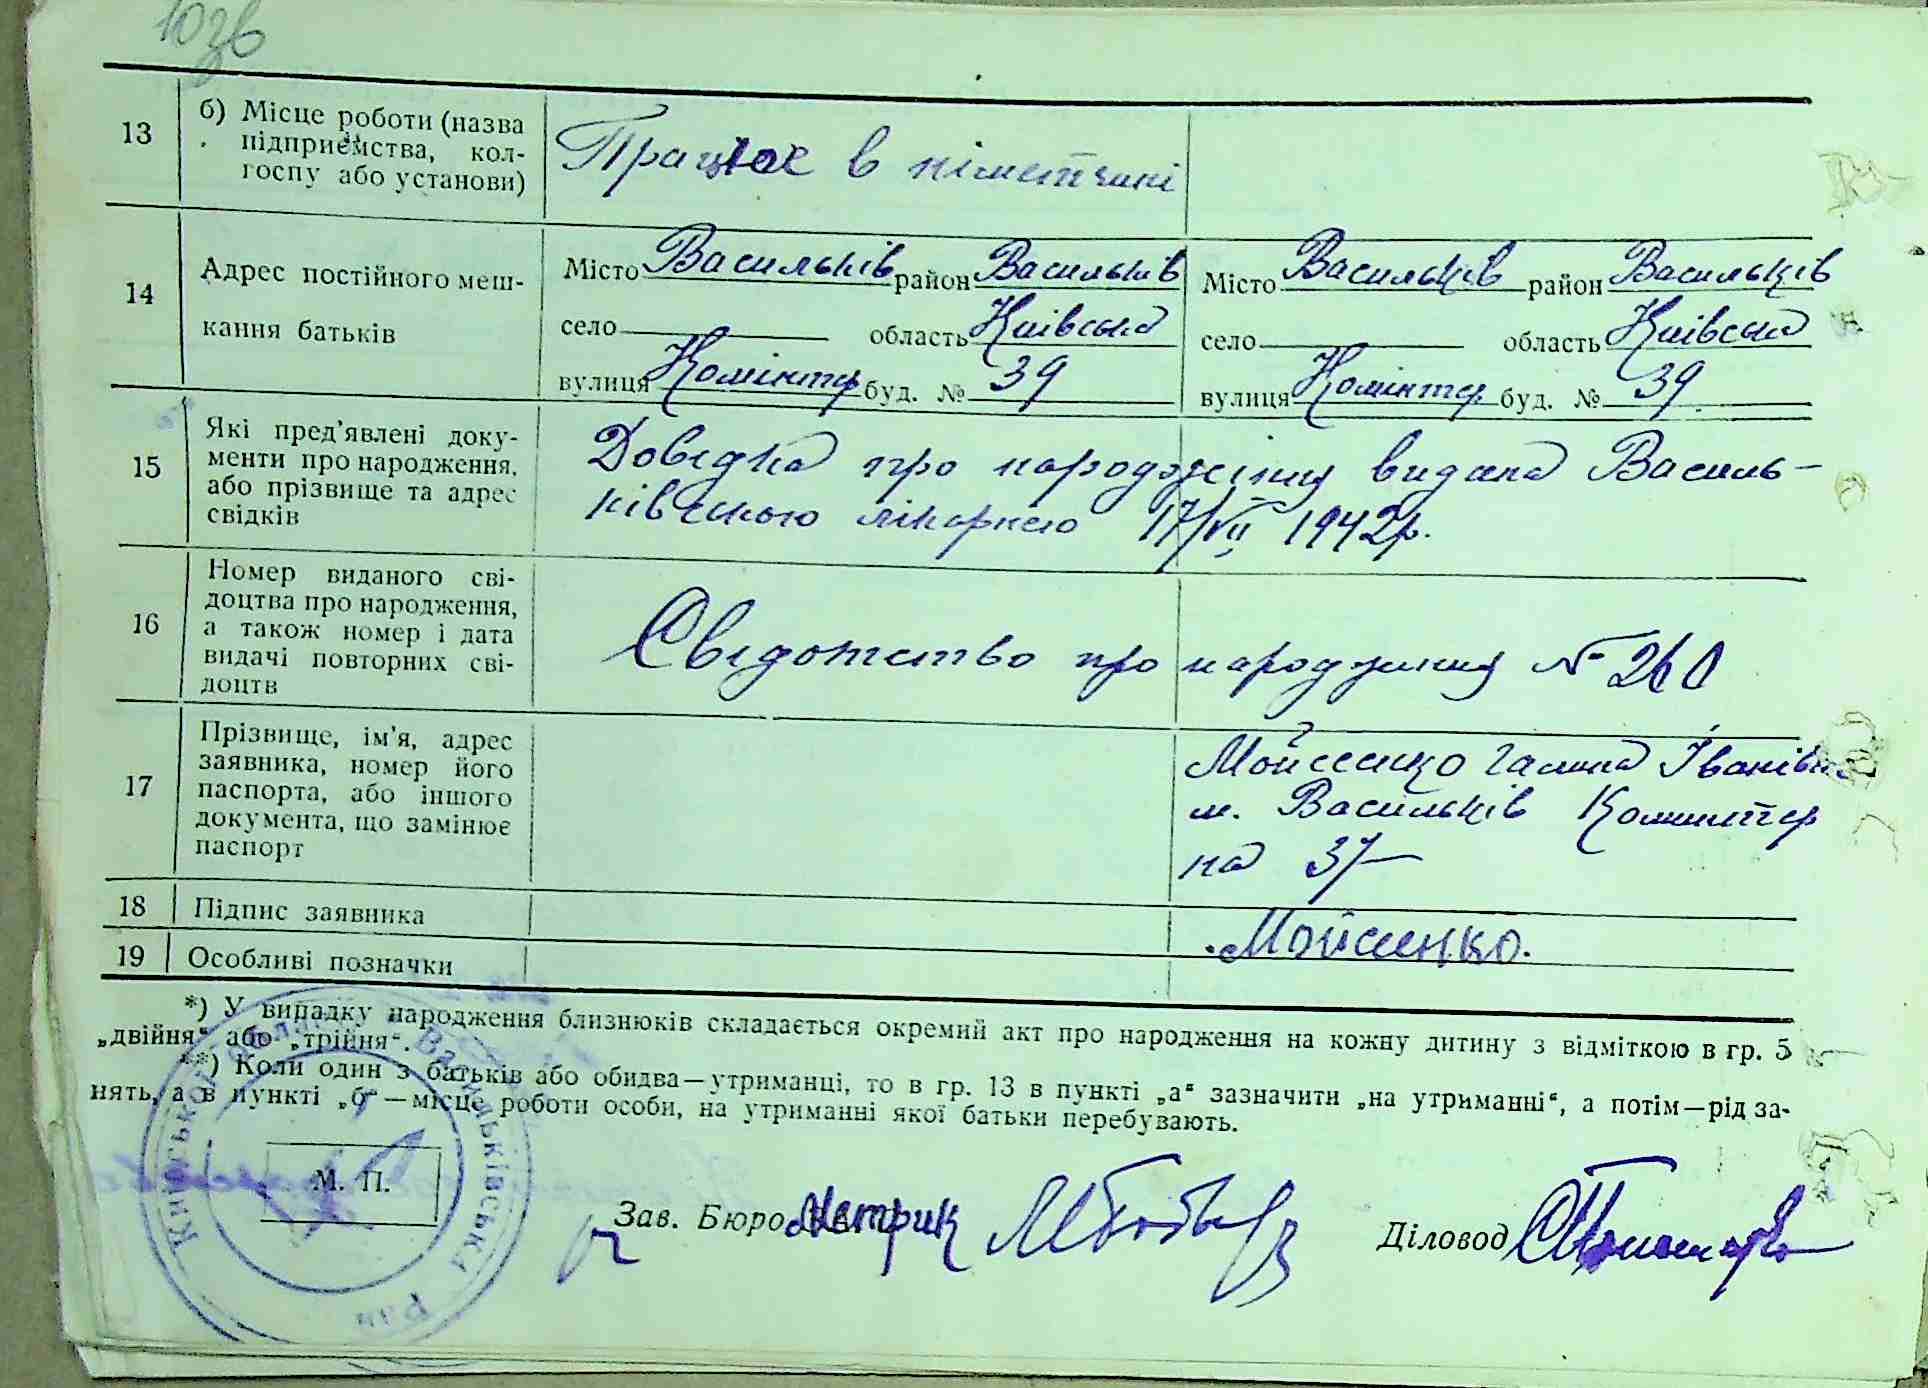 103в
13
б) Місце роботи (назва
підприємства, кол-
госпу або установи)
Працює в німетчині
14
Адрес постійного меш-
кання батьків
Місто Васильків район Васильків
село область Київська
вулиця Комінтер буд. № 39
Місто Васильків район Васильків
село область Київська
вулиця Комінтер буд. № 39
15
Які пред'явлені доку-
менти про народження,
або прізвище та адрес
свідків
Довєдка про народжіння видана Василь-
ківською лікарнею 17/VII 1942р.
16
Номер виданого сві-
доцтва про народження,
а також номер і дата
видачі повторних сві-
доцтв
Свєдотство про народження №
17
Прізвище, ім'я, адрес
заявника, номер його
паспорта, або іншого
документа, що замінює
паспорт
Мойсеенко Галина Іванівна
м. Васильків Коминтер
на 37
18
Підпис заявника
Мойсиенко.
19
Особливі позначки
*) У випадку народження близнюків складається окремий акт про народження на кожну дитину з відміткою в гр. 5
„двійня“ або „трійня“.
**) Коли один з батьків або обидва—утриманці, то в гр. 13 в пункті „а“ зазначити „на утриманні“, а потім—рід за-
нять, а в пункті „б“—місце роботи особи, на утриманні якої батьки перебувають.
Київської області Васильківська Рай
М. П.
Зав. Бюро Метрик
Діловод